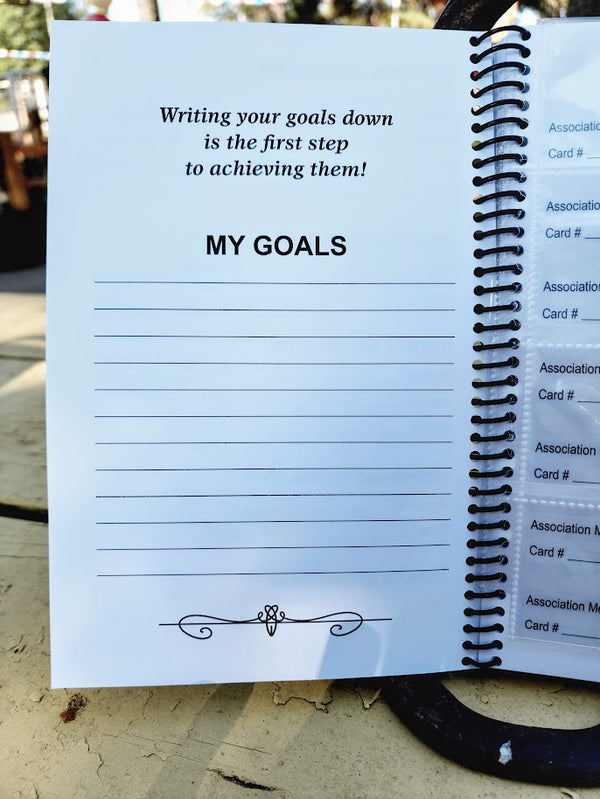 Writing your goals down
is the first step
to achieving them!
MY GOALS
Card #
Card #
Card #
Association
Card #
Association
Card #
Association M
Card #
Association Me
Card #